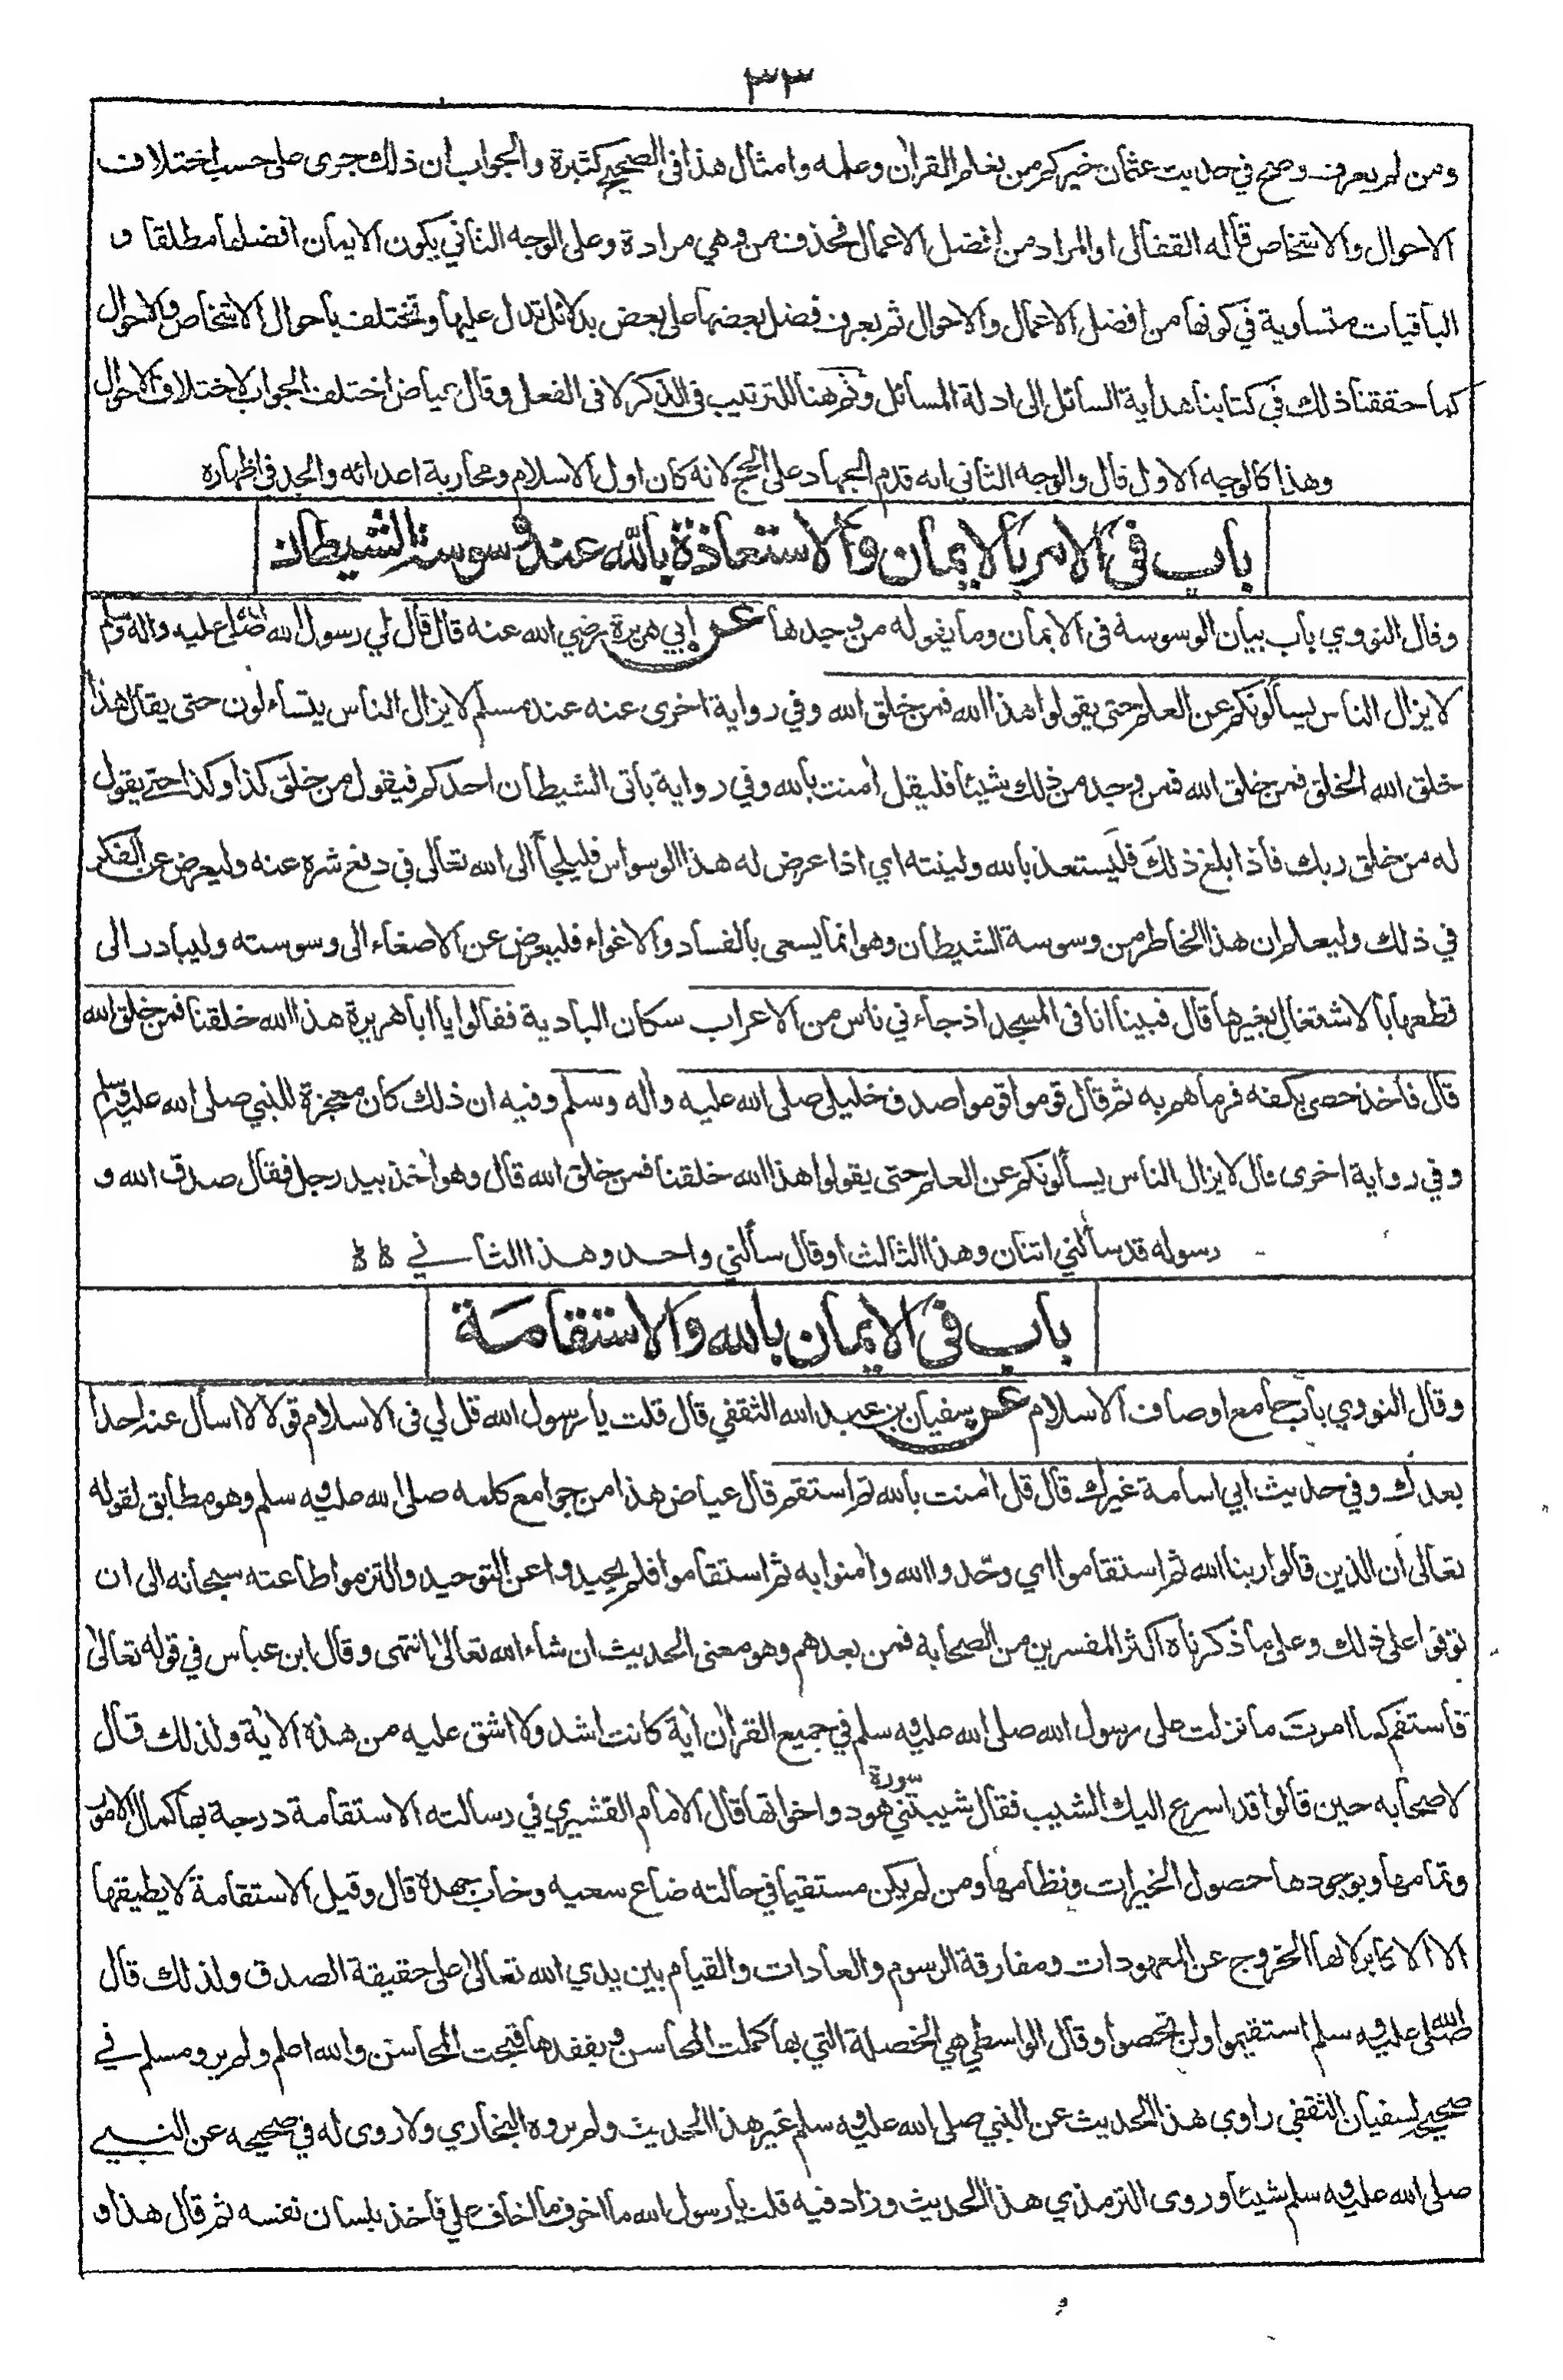 ٣٣
ومن لم يعرف وصح في حديث عثمان خيركم من تعلم القرآن وعلمه وامثال هذا في الصحيح كثيرة والجواب ان ذلك جرى على حسب اختلاف
الاحوال والاشخاص قاله القفال او المراد من افضل الاعمال فحذف من وهي مرادة وعلى الوجه الثاني يكون الايمان افضلها مطلقا و
الباقيات متساوية في كونها من افضل الاعمال والاحوال ثم يعرف فضل بعضها على بعض بدلائل تدل عليها وتختلف باحوال الاشخاص والاحوال
كما حققنا ذلك في كتابنا هداية السائل الى ادلة المسائل وثم هنا للترتيب في الذكر لا في الفعل وقال عياض اختلف الجواب لاختلاف الاحوال
وهذا كالوجه الاول قال والوجه الثاني انه قدم الجهاد على الحج لانه كان اول الاسلام ومحاربة اعدائه والجد في اظهاره
باب في الامر بالايمان والاستعاذة بالله عند وسوسة الشيطان
وقال النووي باب بيان الوسوسة في الايمان وما يقوله من وجدها عن ابي هريرة رضي الله عنه قال قال لي رسول الله صلى الله عليه واله وسلم
لا يزال الناس يسألونكم عن العلم حتى يقولوا هذا الله فمن خلق الله وفي رواية اخرى عنه عند مسلم لا يزال الناس يتساءلون حتى يقال هذا
خلق الله الخلق فمن خلق الله فمن وجد من ذلك شيئا فليقل امنت بالله وفي رواية يأتى الشيطان احدكم فيقول من خلق كذا وكذا حتى يقول
له من خلق ربك فاذا بلغ ذلك فليستعذ بالله ولينته اي اذا عرض له هذا الوسواس فليلجأ الى الله تعالى في دفع شره عنه وليعرض عن الفكر
في ذلك وليعلم ان هذا الخاطر من وسوسة الشيطان وهو انما يسعى بالفساد والاغواء فليعرض عن الاصغاء الى وسوسته وليبادر الى
قطعها بالاشتغال بغيرها قال فبينا انا في المسجد اذ جاءني ناس من الاعراب سكان البادية فقالوا يا ابا هريرة هذا الله خلقنا فمن خلق الله
قال فأخذ حصى بكفه فرماهم به ثم قال قوموا قوموا صدق خليلى صلى الله عليه وآله وسلم وفيه ان ذلك كان معجزة للنبي صلى الله عليه وسلم
وفي رواية اخرى قال لا يزال الناس يسألونكم عن العلم حتى يقولوا هذا الله خلقنا فمن خلق الله قال وهو اخذ بيد رجل فقال صدق الله و
رسوله قد سألني اثنان وهذا الثالث او قال سألني واحد وهذا الثاني
باب في الايمان بالله والاستقامة
وقال النووي باب جامع اوصاف الاسلام عن سفيان بن عبد الله الثقفي قال قلت يا رسول الله قل لي في الاسلام قولا لا اسأل عنه احدا
بعدك وفي حديث ابي اسامة غيرك قال قل امنت بالله ثم استقم قال عياض هذا من جوامع كلمه صلى الله عليه وسلم وهو مطابق لقوله
تعالى ان الذين قالوا ربنا الله ثم استقاموا اي وحدوا الله وامنوا به ثم استقاموا فلم يحيدوا عن التوحيد والتزموا طاعته سبحانه الى ان
توفوا على ذلك وعلى ما ذكرناه اكثر المفسرين من الصحابة فمن بعدهم وهو معنى الحديث ان شاء الله تعالى انتهى وقال ابن عباس في قوله تعالى
فاستقم كما امرت ما نزلت على رسول الله صلى الله عليه وسلم في جميع القرآن آية كانت اشد ولا اشق عليه من هذه الآية ولذلك قال
لاصحابه حين قالوا قد اسرع اليك الشيب فقال شيبتني سورة هود واخواتها قال الامام القشيري في رسالته الاستقامة درجة بها كمال الامور
وتمامها وبوجودها حصول الخيرات ونظامها ومن لم يكن مستقيما في حالته ضاع سعيه وخاب جهده قال وقيل الاستقامة لا يطيقها
الا الاكابر لانها الخروج عن المعهودات ومفارقة الرسوم والعادات والقيام بين يدي الله تعالى على حقيقة الصدق ولذلك قال
صلى الله عليه وسلم استقيموا ولن تحصوا وقال الواسطي هي الخصلة التي بها كملت المحاسن وبفقدها قبحت المحاسن والله اعلم ولم يرو مسلم في
صحيحه لسفيان الثقفي راوي هذا الحديث عن النبي صلى الله عليه وسلم غير هذا الحديث ولم يروه البخاري ولا روى له في صحيحه عن النبي
صلى الله عليه وسلم شيئا وروى الترمذي هذا الحديث وزاد فيه قلت يا رسول الله ما اخوف ما اخاف علي فأخذ بلسان نفسه ثم قال هذا و